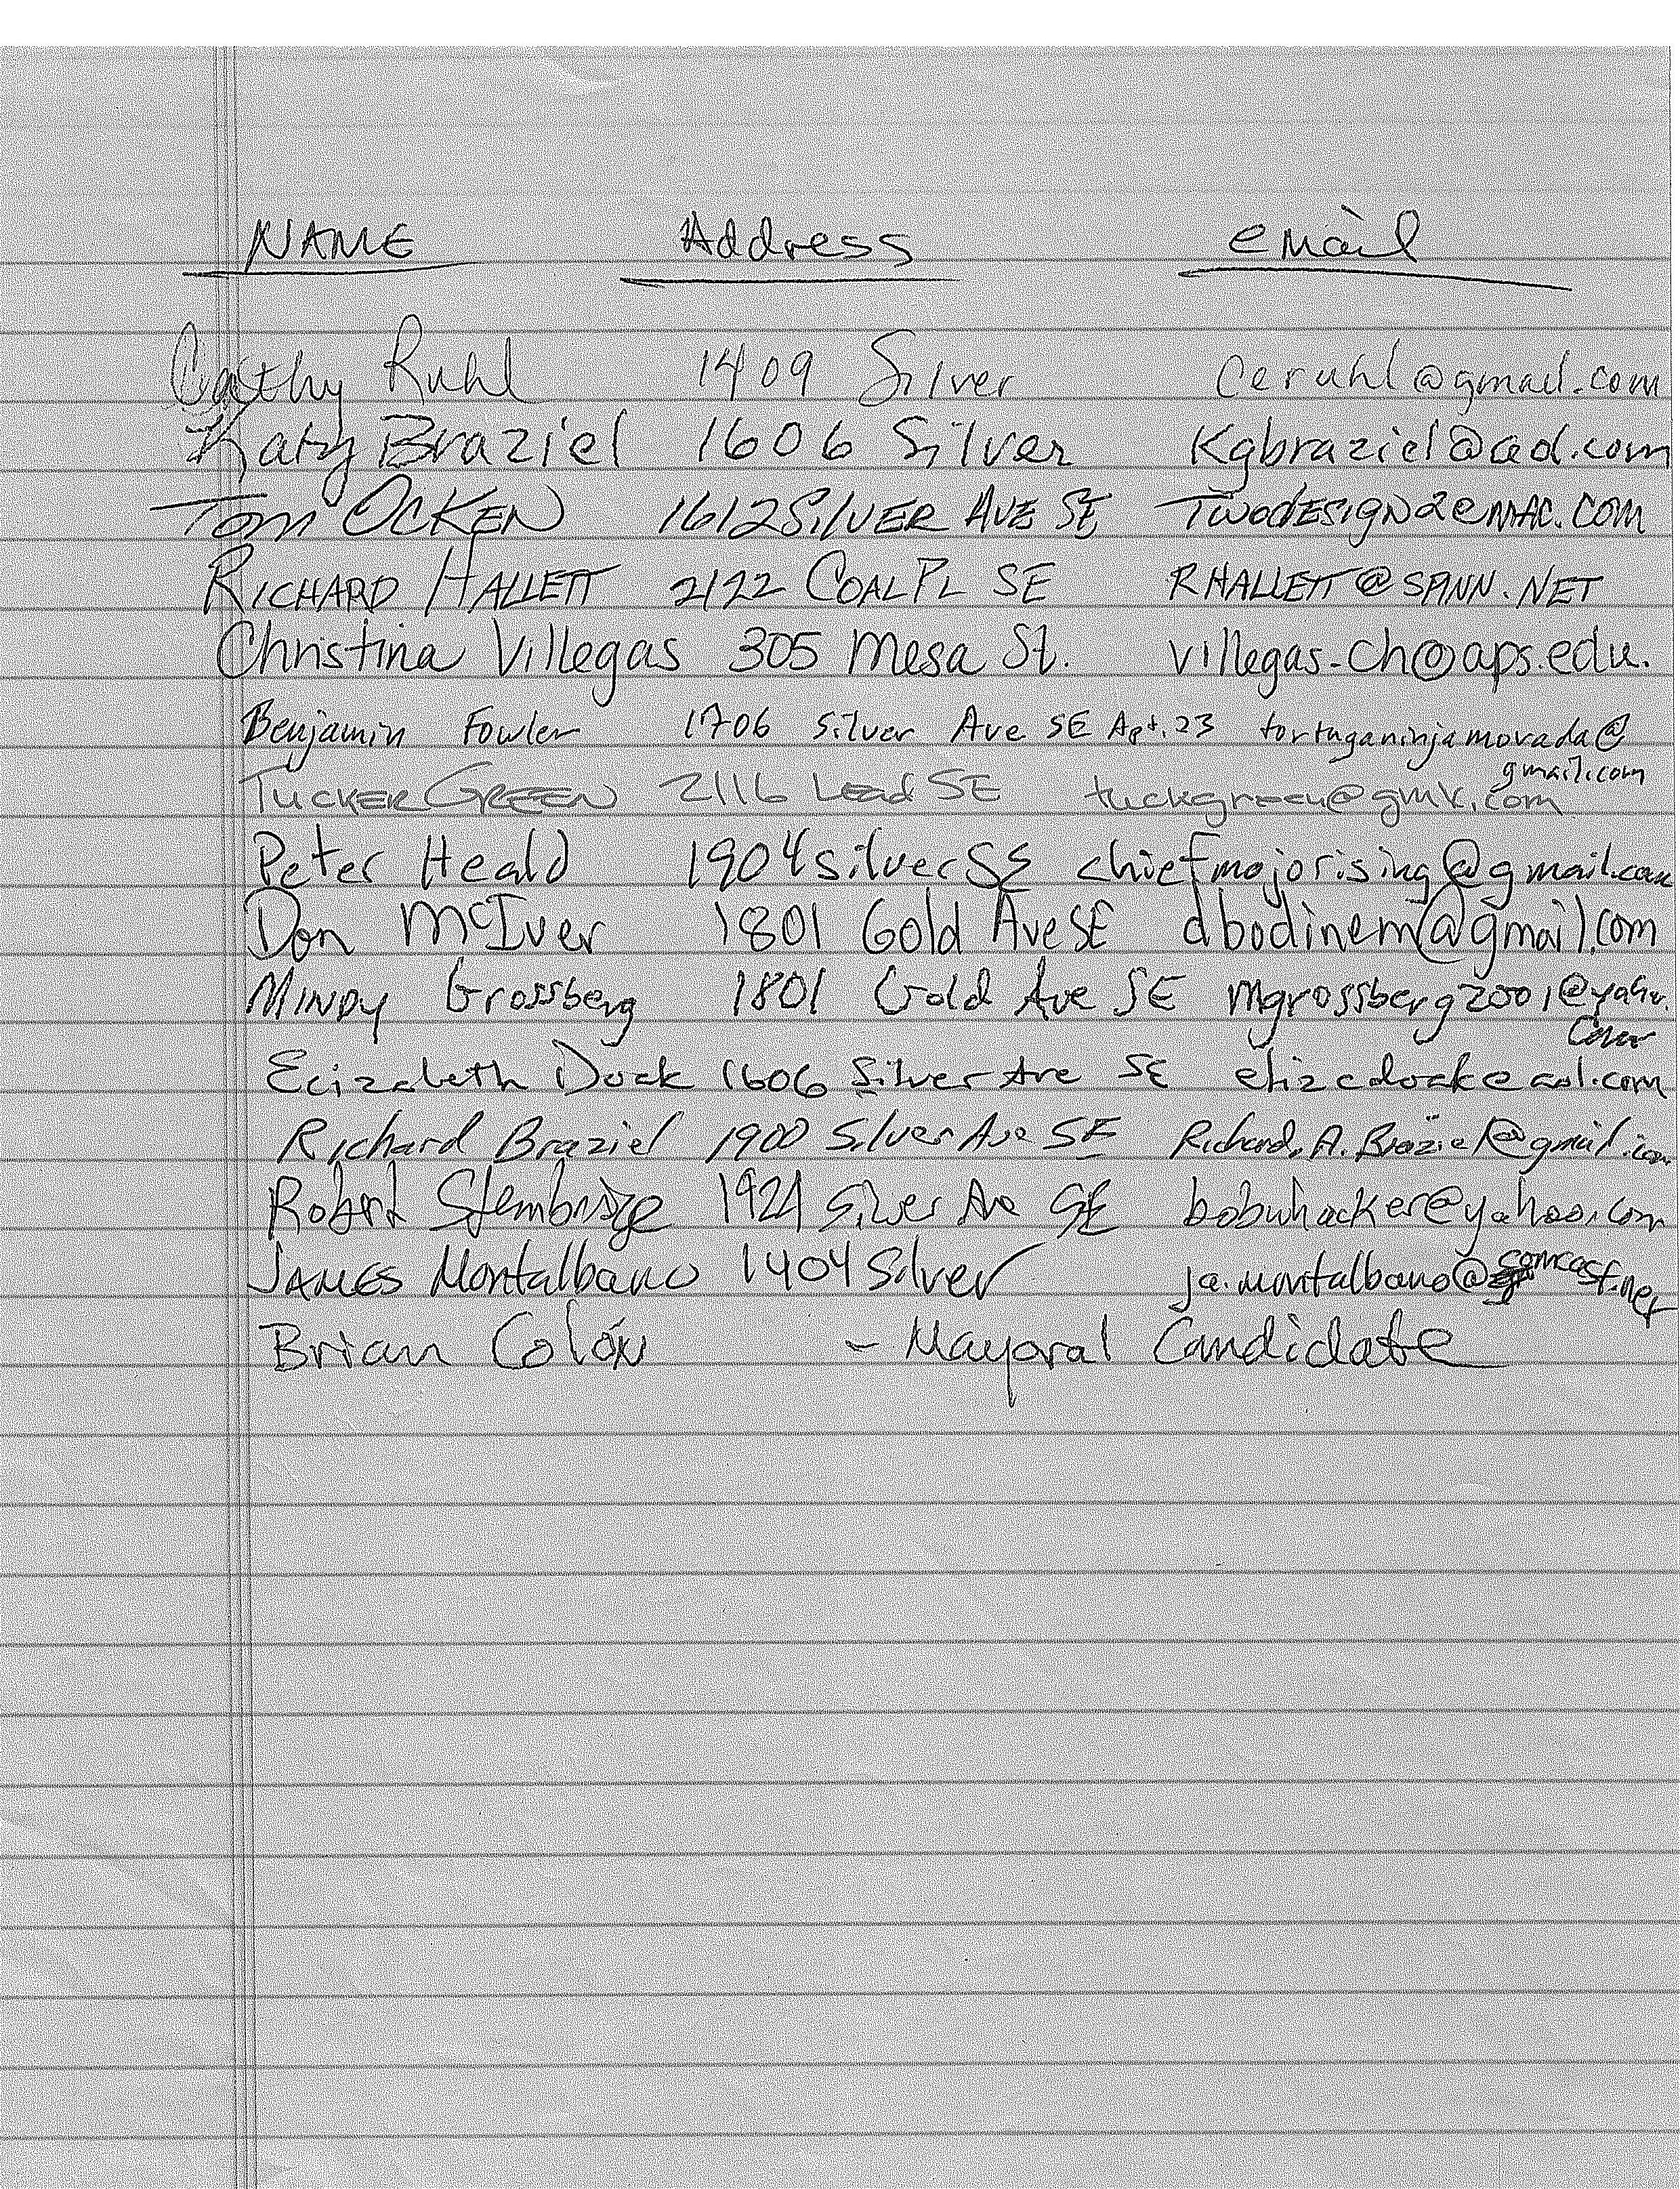 NAME Address email
Cathy Ruhl 1409 Silver ceruhl@gmail.com
Katy Braziel 1606 Silver Kgbraziel@aol.com
Tom OCKEN 1612 SilVER AVE SE TWODESIGN2@MAC.COM
RICHARD HALLETT 2122 COAL PL SE RHALLETT@SPINN.NET
Christina Villegas 305 Mesa St. villegas-ch@aps.edu.
Benjamin Fowler 1706 Silver Ave SE Apt. 23 tortuganinjamorada@
gmail.com
TUCKER GREEN 2116 Lead SE tuckgreen@gmx.com
Peter Heald 1904 silver SE chiefmojorising@gmail.com
Don McIver 1801 Gold Ave SE dbodinem@gmail.com
MINDY Grossberg 1801 Gold Ave SE mgrossberg2001@yahoo.
com
Elizabeth Dock 1606 Silver Ave SE elizadock@aol.com
Richard Braziel 1900 Silver Ave SE Richard.A.Braziel@gmail.com
Robert Stembridge 1924 Silver Ave SE bobwhacker@yahoo.com
JAMES Montalbano 1404 Silver ja.montalbano@comcast.net
Brian Colón - Mayoral Candidate